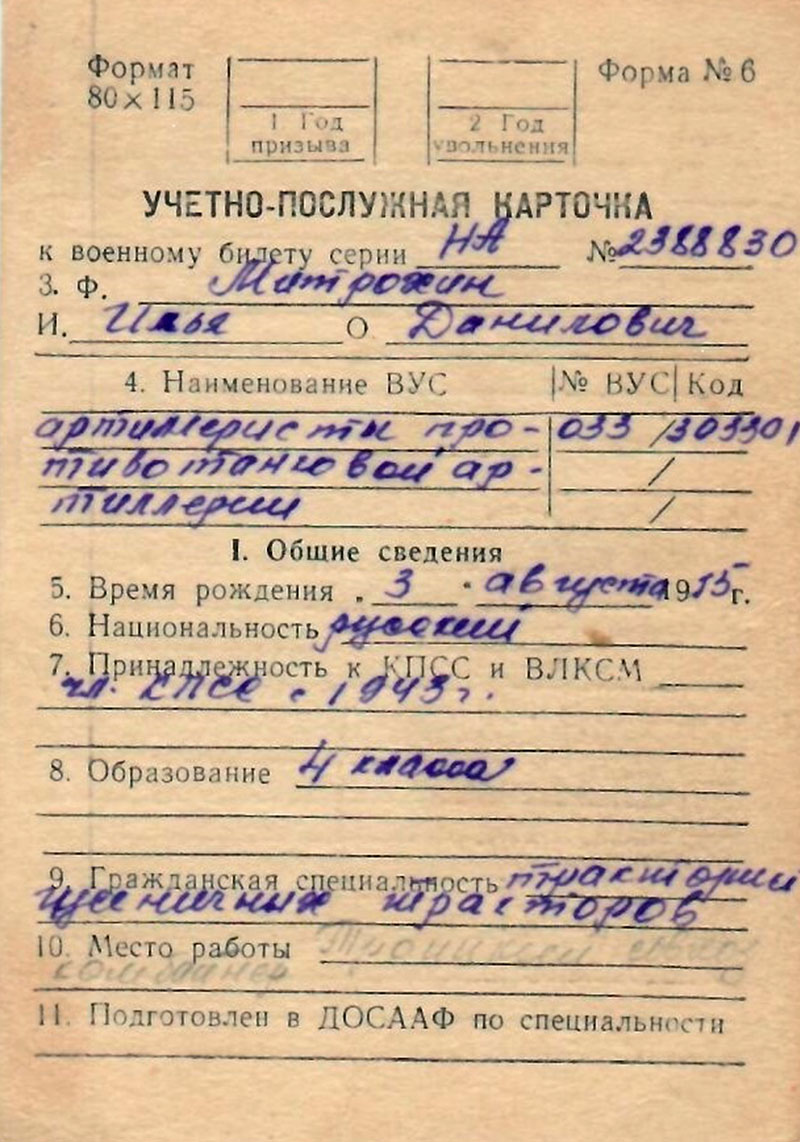 Формат 80×115
1 Год призыва
2 Год увольнения
Форма № 6
УЧЕТНО-ПОСЛУЖНАЯ КАРТОЧКА
к военному билету серии НА № 2388830
3. Ф. Митрохин
И. Илья О Данилович
4. Наименование ВУС № ВУС Код
артиллеристы про- 033 /303301
тивотанковой ар- /
тиллерии /
I. Общие сведения
5. Время рождения „ 3 " августа 1915 г.
6. Национальность русский
7. Принадлежность к КПСС и ВЛКСМ
чл. КПСС с 1943 г.
8. Образование 4 класса
9. Гражданская специальность
гусеничных тракторов
10. Место работы Троицкий
комбайнер
11. Подготовлен в ДОСААФ по специальности